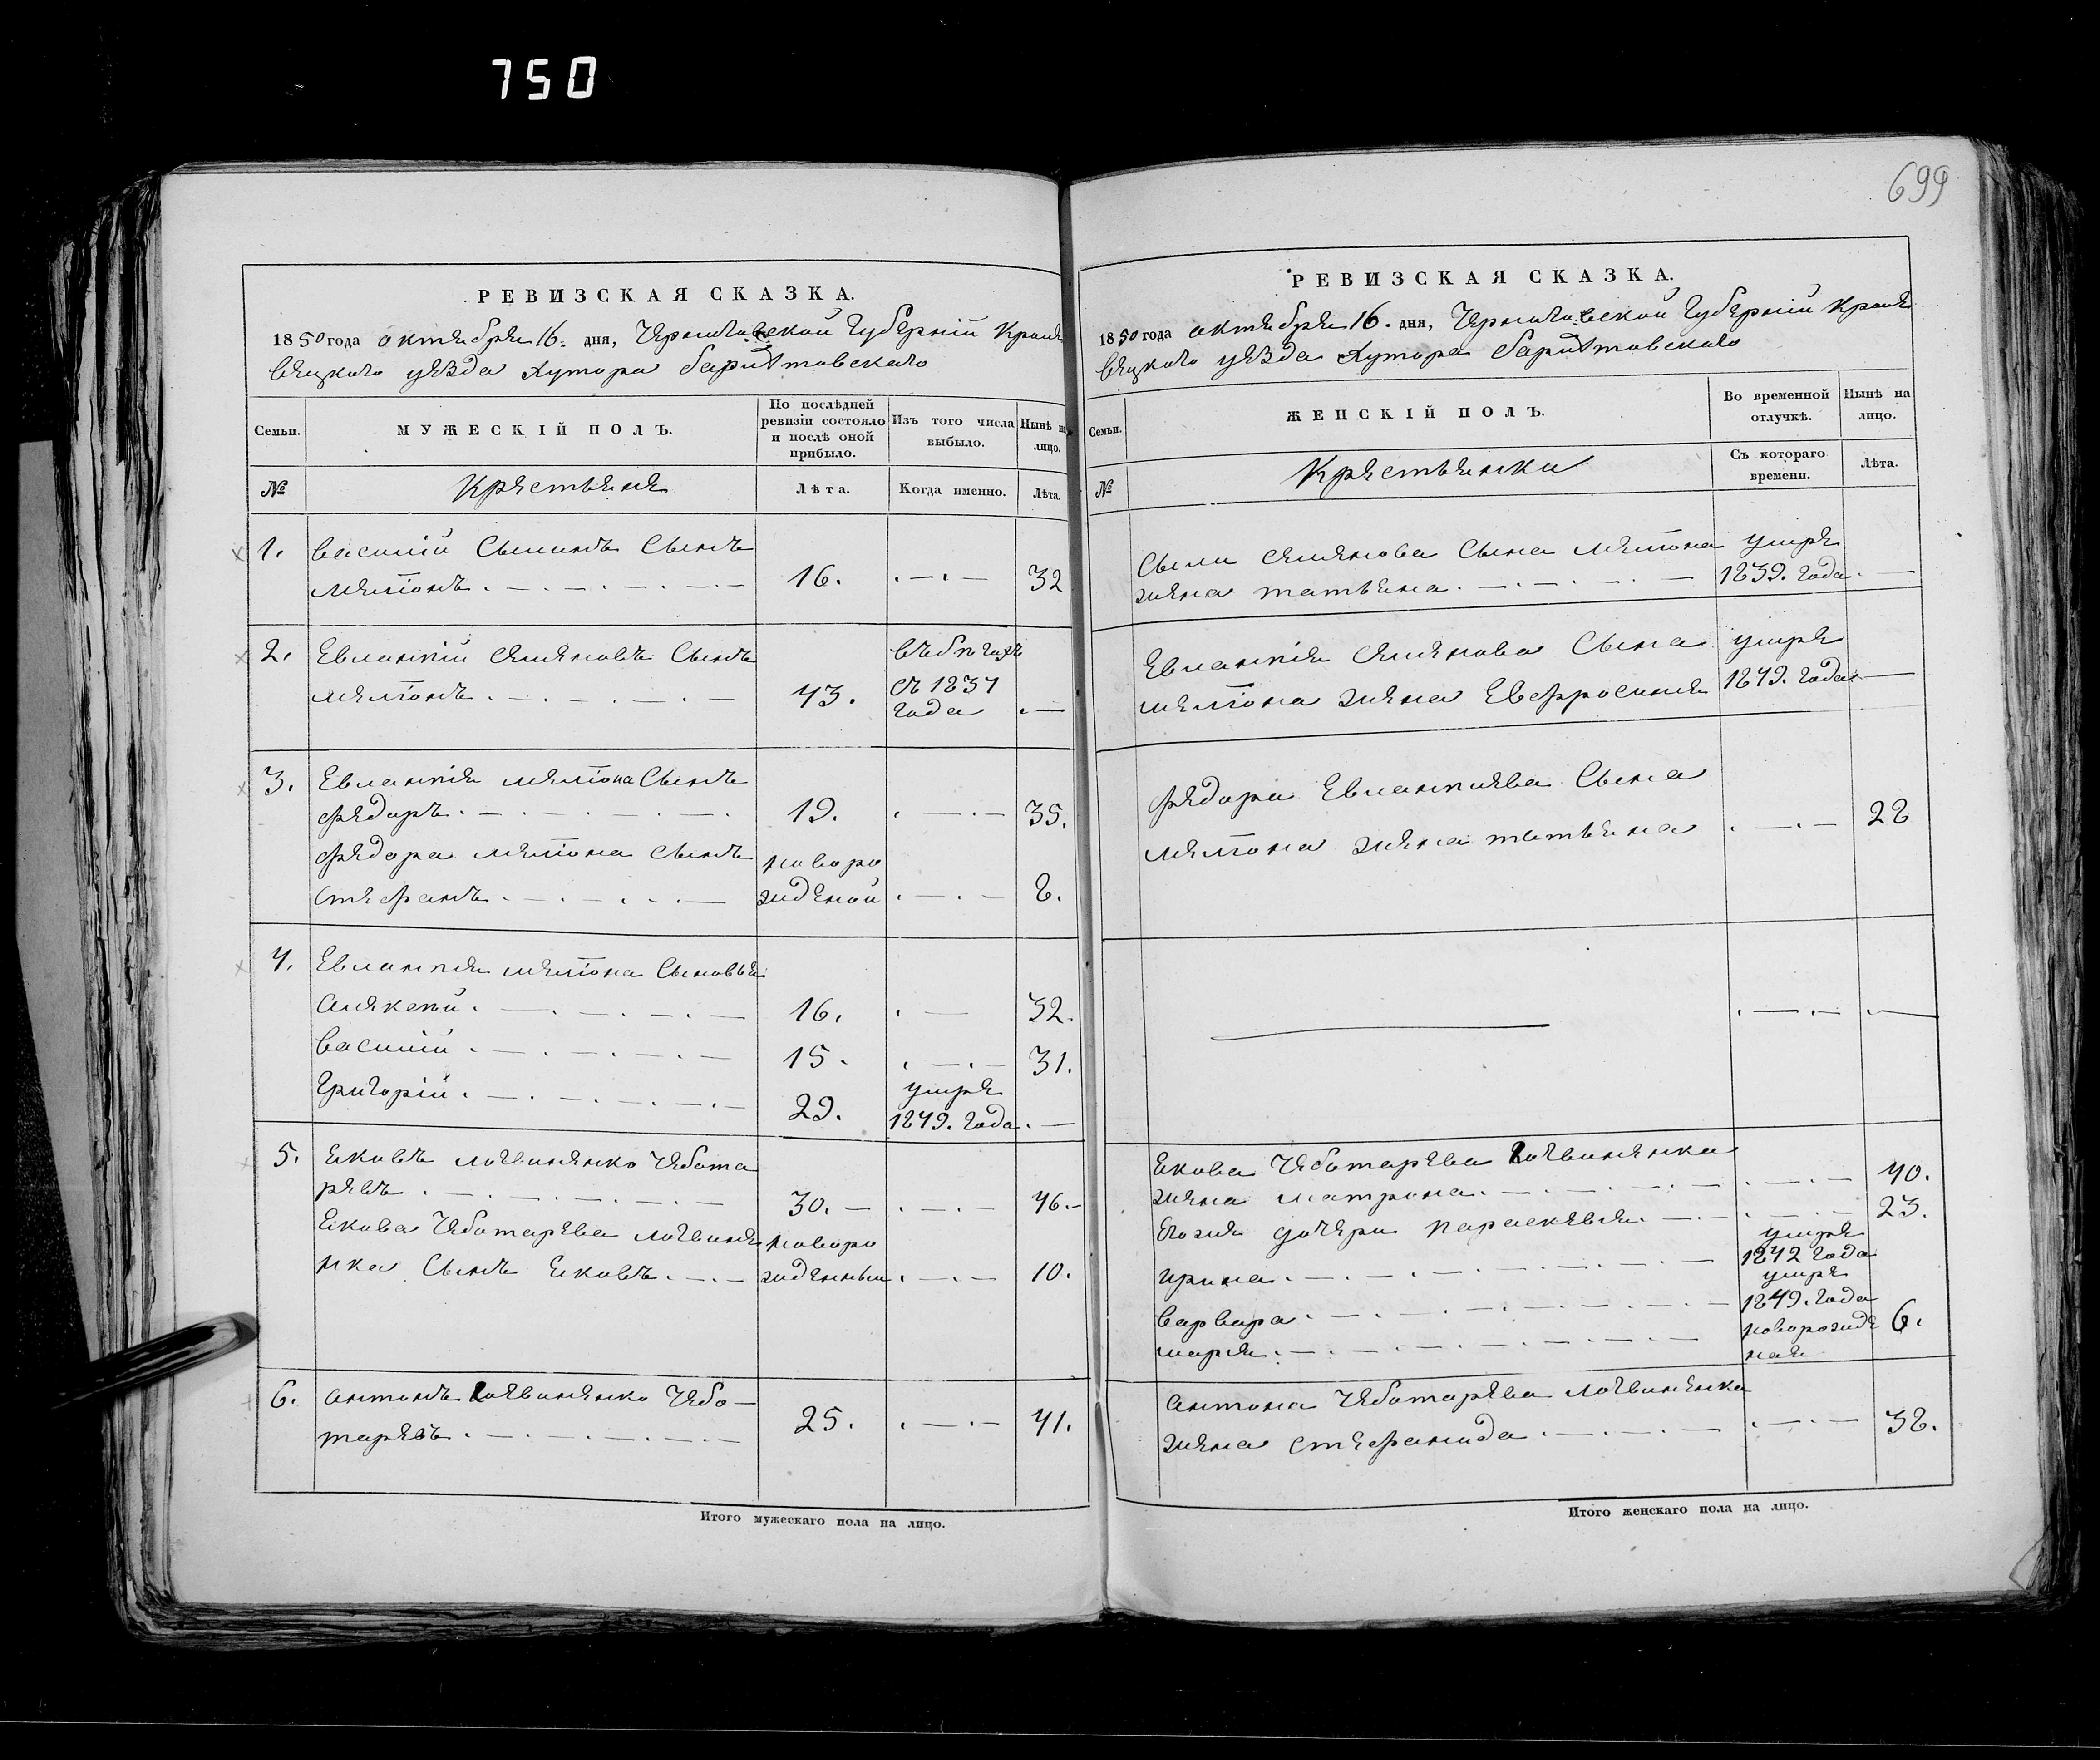 750
699
РЕВИЗСКАЯ СКАЗКА.
1850 года октября 16. дня, Черниговской Губернiи Кроле
вецкого уезда Хутора
Семьи.
МУЖЕСКІЙ ПОЛЪ.
По послѣдней ревизіи состояло и послѣ оной прибыло.
Изъ того числа выбыло.
Нынѣ на лицо.
№
Крестьяне
Лѣта.
Когда именно.
Лѣта.
1. василій Сынъ
16. 32
2. Евлампій Семеновъ Сынъ
въ бѣгахъ
43. съ 1837
года
3. Евлампія Сынъ
Федоръ. 19. 35.
Федора сынъ новоро
Стефанъ. жденой 8.
4. Евлампія Сыновья
Алексей. 16. 32.
василій. 15. 31.
умре
Григорій. 29. 1849. года.
5. Яковъ логвиненко Чебота
ревъ. 30. 46.
Якова Чеботарева логвине новоро
нка Сынъ Яковъ. жденный 10.
6. антонъ логвиненко Чебо-
таревъ. 25. 41.
Итого мужескаго пола на лицо.
РЕВИЗСКАЯ СКАЗКА.
1850 года октября 16. дня, Черниговской Губернiи Кроле
вецкого уезда Хутора
Семьи.
ЖЕНСКІЙ ПОЛЪ.
Во временной отлучкѣ.
Нынѣ на лицо.
№
Крестьянки
Съ котораго времени.
Лѣта.
Семенова Сына умре
жена татьяна. 1839. года.
Евлампія Семенова Сына умре
жена Евфросинья 1849. года
Федора Евлампіева Сына
жена татьяна 28
Якова Чеботарева логвиненка
жена матрона. 40.
дочери параскевія. 23.
умре
ирина. 1842 года
умре
варвара. 1849. года
марья. новорожде 6.
ная
антона Чеботарева логвиненка
жена стефанида. 38.
Итого женскаго пола на лицо.